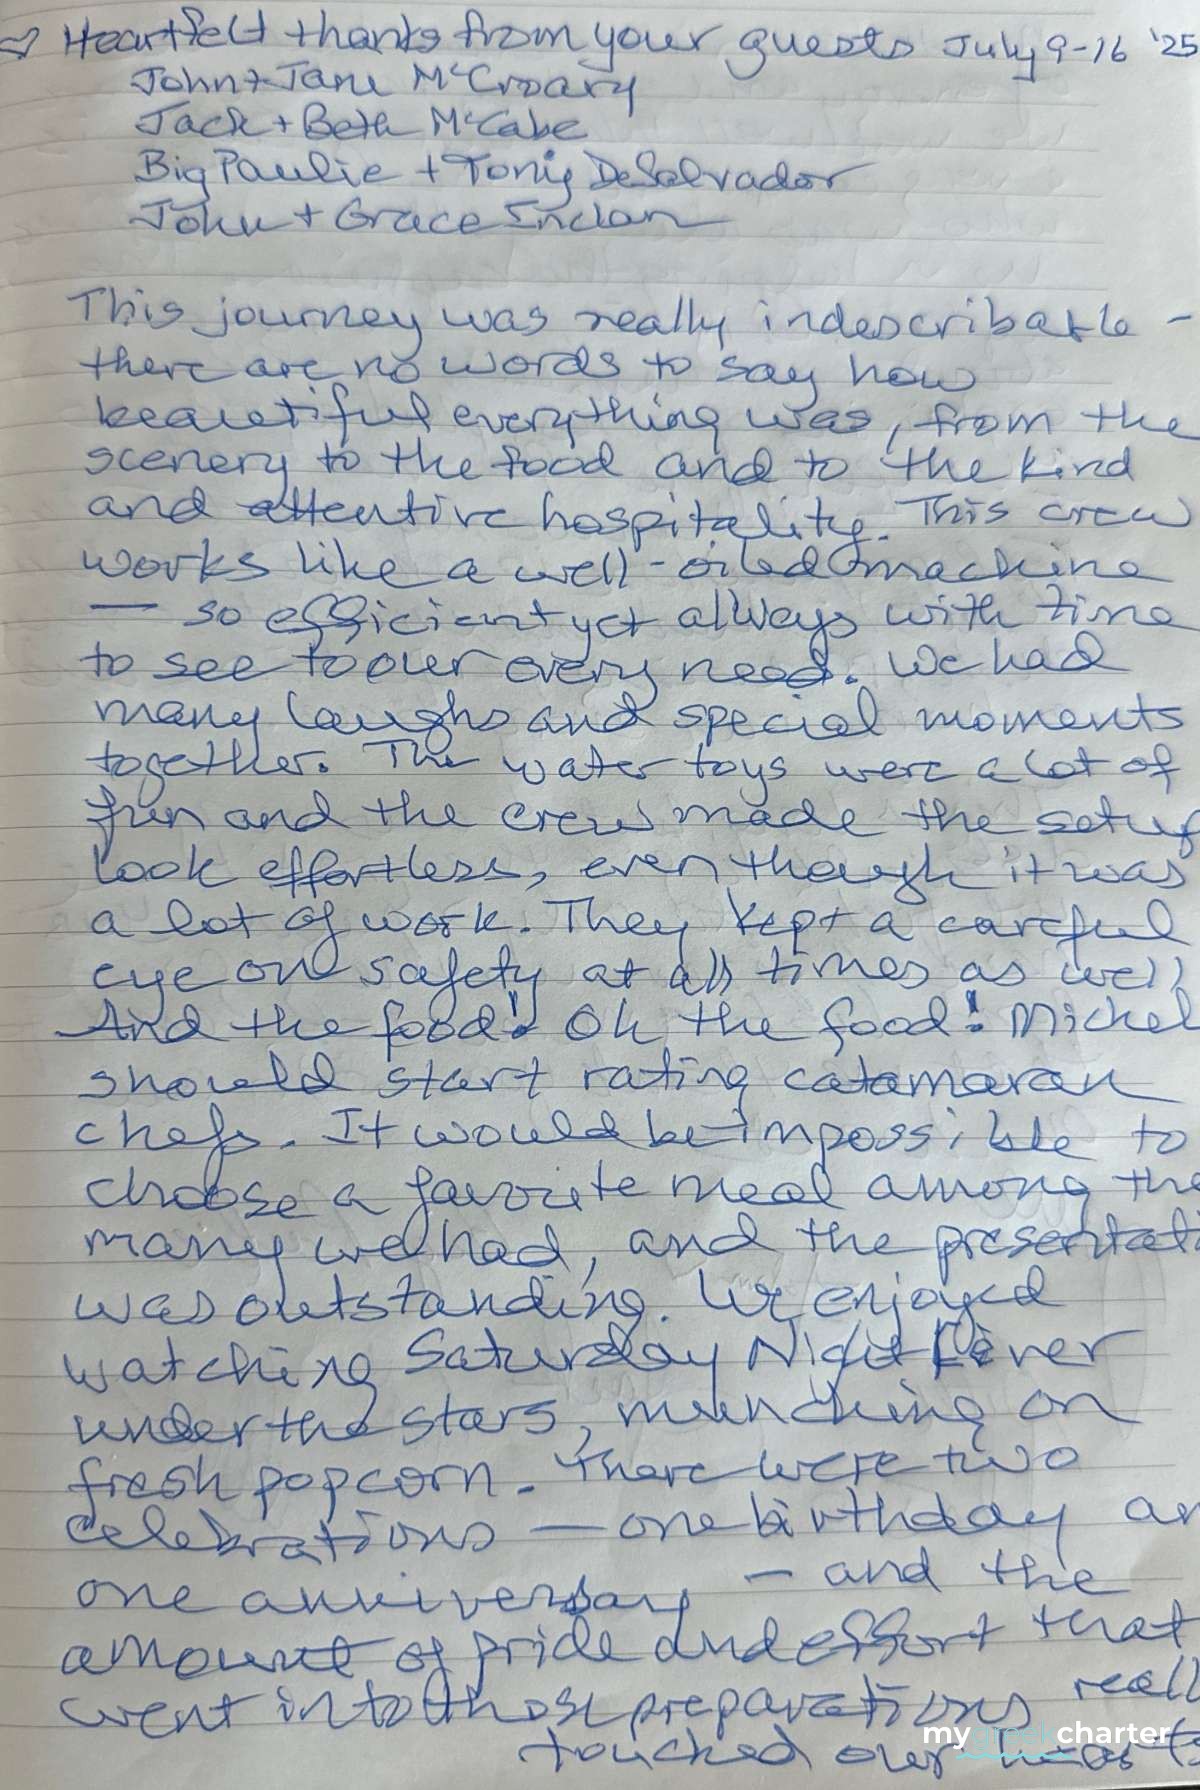 Heartfelt thanks from your guests July 9-16 '25
John + Jane McCroary
Jack + Beth McCabe
Big Paulie + Tonij DeSalvador
John + Grace Inclan
This journey was really indescribable -
there are no words to say how
beautiful everything was, from the
scenery to the food and to the kind
and attentive hospitality. This crew
works like a well-oiled machine
— so efficient yet always with time
to see to our every need. We had
many laughs and special moments
together. The water toys were a lot of
fun and the crew made the setup
look effortless, even though it was
a lot of work. They kept a careful
eye on safety at all times as well
And the food! Oh the food! Michel
should start rating catamaran
chefs. It would be impossible to
choose a favorite meal among the
many we had, and the presentati
was outstanding. We enjoyed
watching Saturday Night Fever
under the stars, munching on
fresh popcorn. There were two
celebrations — one birthday an
one anniversary — and the
amount of pride and effort that
went into those preparations reall
touched our hearts
mygreekcharter